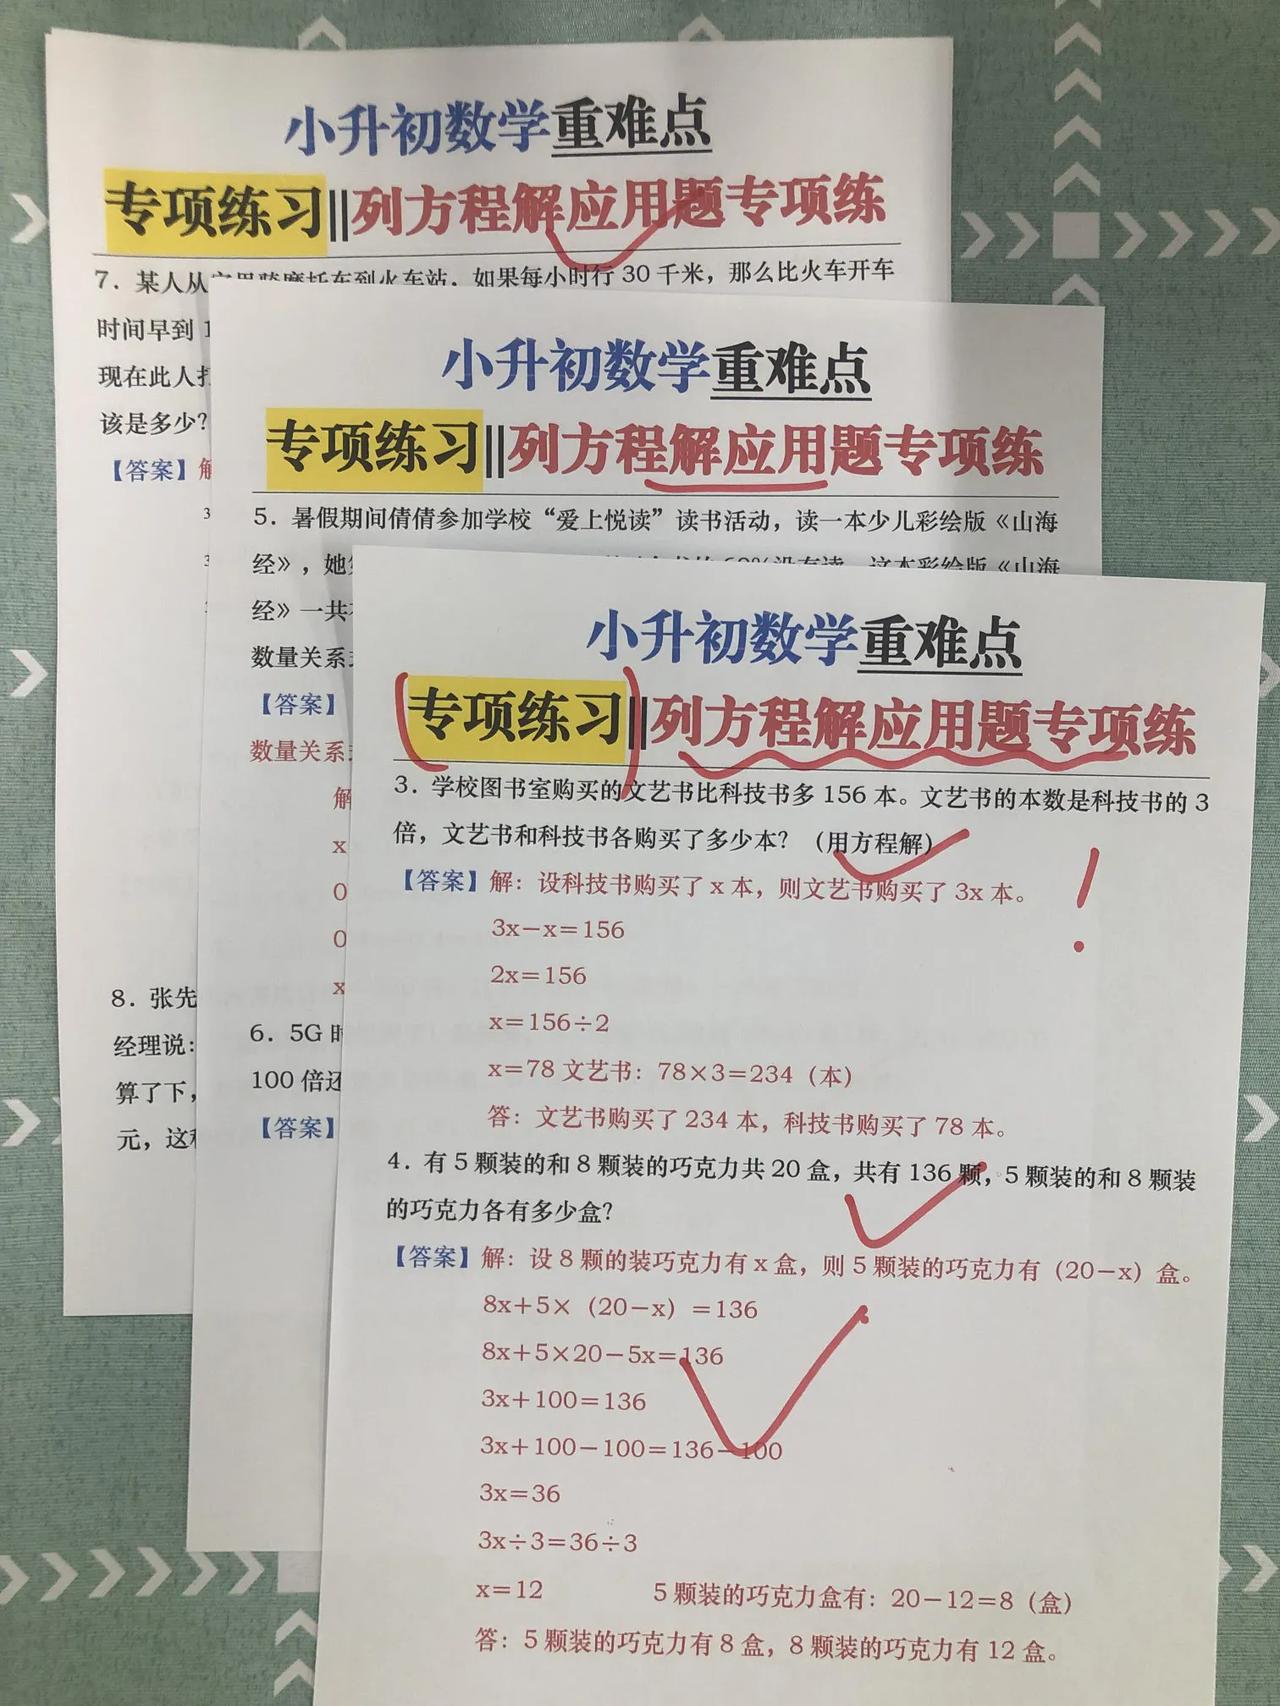 小升初数学重难点
专项练习||列方程解应用题专项练
7．某人从家里骑摩托车到火车站，如果每小时行 30 千米，那么比火车开车
时间早到 1
现在此人打
该是多少？
【答案】解
8．张先
经理说：
算了下，
元，这种
小升初数学重难点
专项练习||列方程解应用题专项练
5．暑假期间倩倩参加学校“爱上悦读”读书活动，读一本少儿彩绘版《山海
经》，她 60%没有读，这本彩绘版《山海
经》一共
数量关系
【答案】
数量关系
解
x
0
0
x
6．5G 时
100 倍还
【答案】
小升初数学重难点
专项练习||列方程解应用题专项练
3．学校图书室购买的文艺书比科技书多 156 本。文艺书的本数是科技书的 3
倍，文艺书和科技书各购买了多少本？（用方程解）
【答案】解：设科技书购买了 x 本，则文艺书购买了 3x 本。
3x－x＝156
2x＝156
x＝156÷2
x＝78 文艺书：78×3＝234（本）
答：文艺书购买了 234 本，科技书购买了 78 本。
4．有 5 颗装的和 8 颗装的巧克力共 20 盒，共有 136 颗，5 颗装的和 8 颗装
的巧克力各有多少盒？
【答案】解：设 8 颗的装巧克力有 x 盒，则 5 颗装的巧克力有（20－x）盒。
8x＋5×（20－x）＝136
8x＋5×20－5x＝136
3x＋100＝136
3x＋100－100＝136－100
3x＝36
3x÷3＝36÷3
x＝12 5 颗装的巧克力盒有：20－12＝8（盒）
答：5 颗装的巧克力有 8 盒，8 颗装的巧克力有 12 盒。